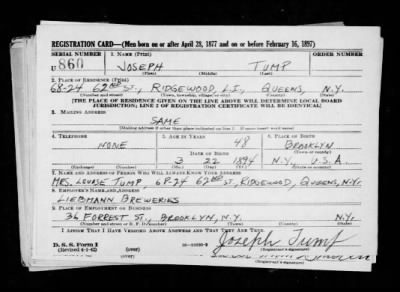 REGISTRATION CARD—(Men born on or after April 28, 1877 and on or before February 16, 1897)
SERIAL NUMBER 1. NAME (Print) ORDER NUMBER
U 860 JOSEPH TUMP
(First) (Middle) (Last)
2. PLACE OF RESIDENCE (Print)
68-24 62ND ST., RIDGEWOOD, L.I., QUEENS, N.Y.
(Number and street) (Town, township, village, or city) (County) (State)
[THE PLACE OF RESIDENCE GIVEN ON THE LINE ABOVE WILL DETERMINE LOCAL BOARD
JURISDICTION; LINE 2 OF REGISTRATION CERTIFICATE WILL BE IDENTICAL]
3. MAILING ADDRESS
SAME
[Mailing address if other than place indicated on line 2. If same insert word same]
4. TELEPHONE 5. AGE IN YEARS 6. PLACE OF BIRTH
NONE 48 BROOKLYN
DATE OF BIRTH (Town or county)
3 22 1894 N.Y. U.S.A.
(Exchange) (Number) (Mo.) (Day) (Yr.) (State or country)
7. NAME AND ADDRESS OF PERSON WHO WILL ALWAYS KNOW YOUR ADDRESS
MRS. LOUISE TUMP, 68-24 62ND ST, RIDGEWOOD, QUEENS, N.Y.
8. EMPLOYER'S NAME AND ADDRESS
LIEBMANN BREWERIES
9. PLACE OF EMPLOYMENT OR BUSINESS
36 FORREST ST., BROOKLYN, N.Y.
(Number and street or R. F. D. number) (Town) (County) (State)
I AFFIRM THAT I HAVE VERIFIED ABOVE ANSWERS AND THAT THEY ARE TRUE.
D. S. S. Form 1
(Revised 4-1-42) (over) Joseph Tump
(Registrant's signature)